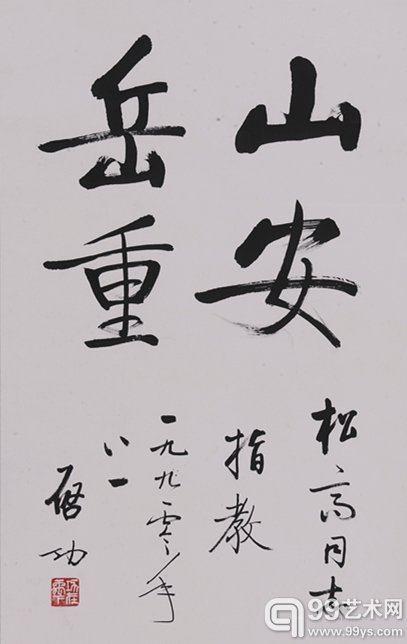 山安
岳重
松高同志
指教
一九九零年
八一
启功
99艺术网
www.99ys.com